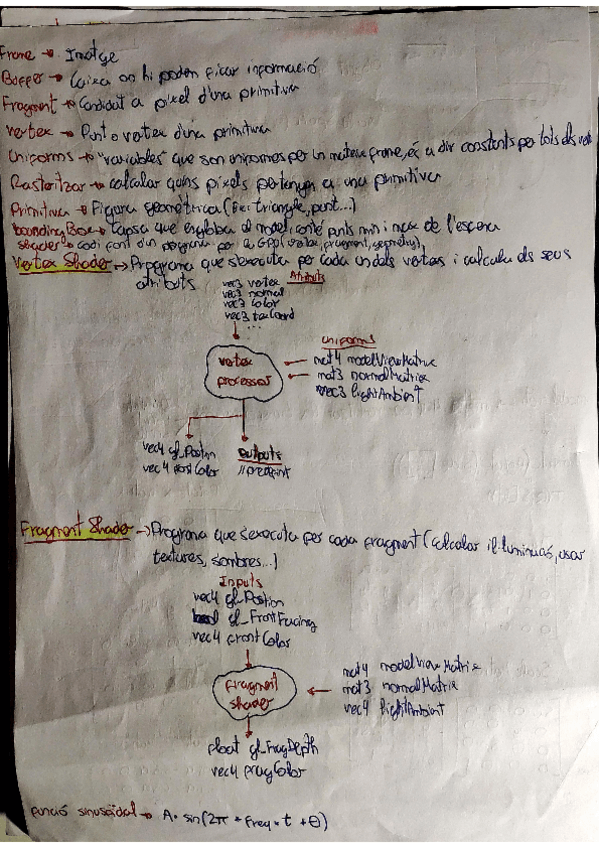 Frame → Imatge
Buffer → Caixa on hi poden ficar informació
Fragment → Candidat a pixel d'una primitiva
Vertex → Punt o vertex d'una primitiva
Uniforms → "variables" que son uniformes per un mateix frame, és a dir constants per tots els
Rasteritzar → calcular quins pixels pertanyen a una primitiva
Primitiva → Figura geomètrica (Ex: triangle, punt...)
bounding Box → Capsa que engloba al model, conté punts min i max de l'escena
shader → codi font d'un programa per a GPU (vertex, fragment, geometry)
Vertex Shader → Programa que s'executa per cada un dels vertexs i calcula els seus
atributs
Atributs
vec3 vertex
vec3 normal
vec3 color
vec3 texCoord
...
Uniforms
vertex
processor
mat4 modelViewMatrix
mat3 normalMatrix
vec3 lightAmbient
vec4 gl_Position
vec4 frontColor
Outputs
Fragment Shader → Programa que s'executa per cada fragment (calcular il·luminació, usar
textures, sombres...)
Inputs
vec4 gl_Position
bool gl_FrontFacing
vec4 frontColor
Fragment
shader
mat4 modelViewMatrix
mat3 normalMatrix
vec4 lightAmbient
float gl_FragDepth
vec4 fragColor
Funció sinusoïdal → A · sin(2π * freq * t + θ)